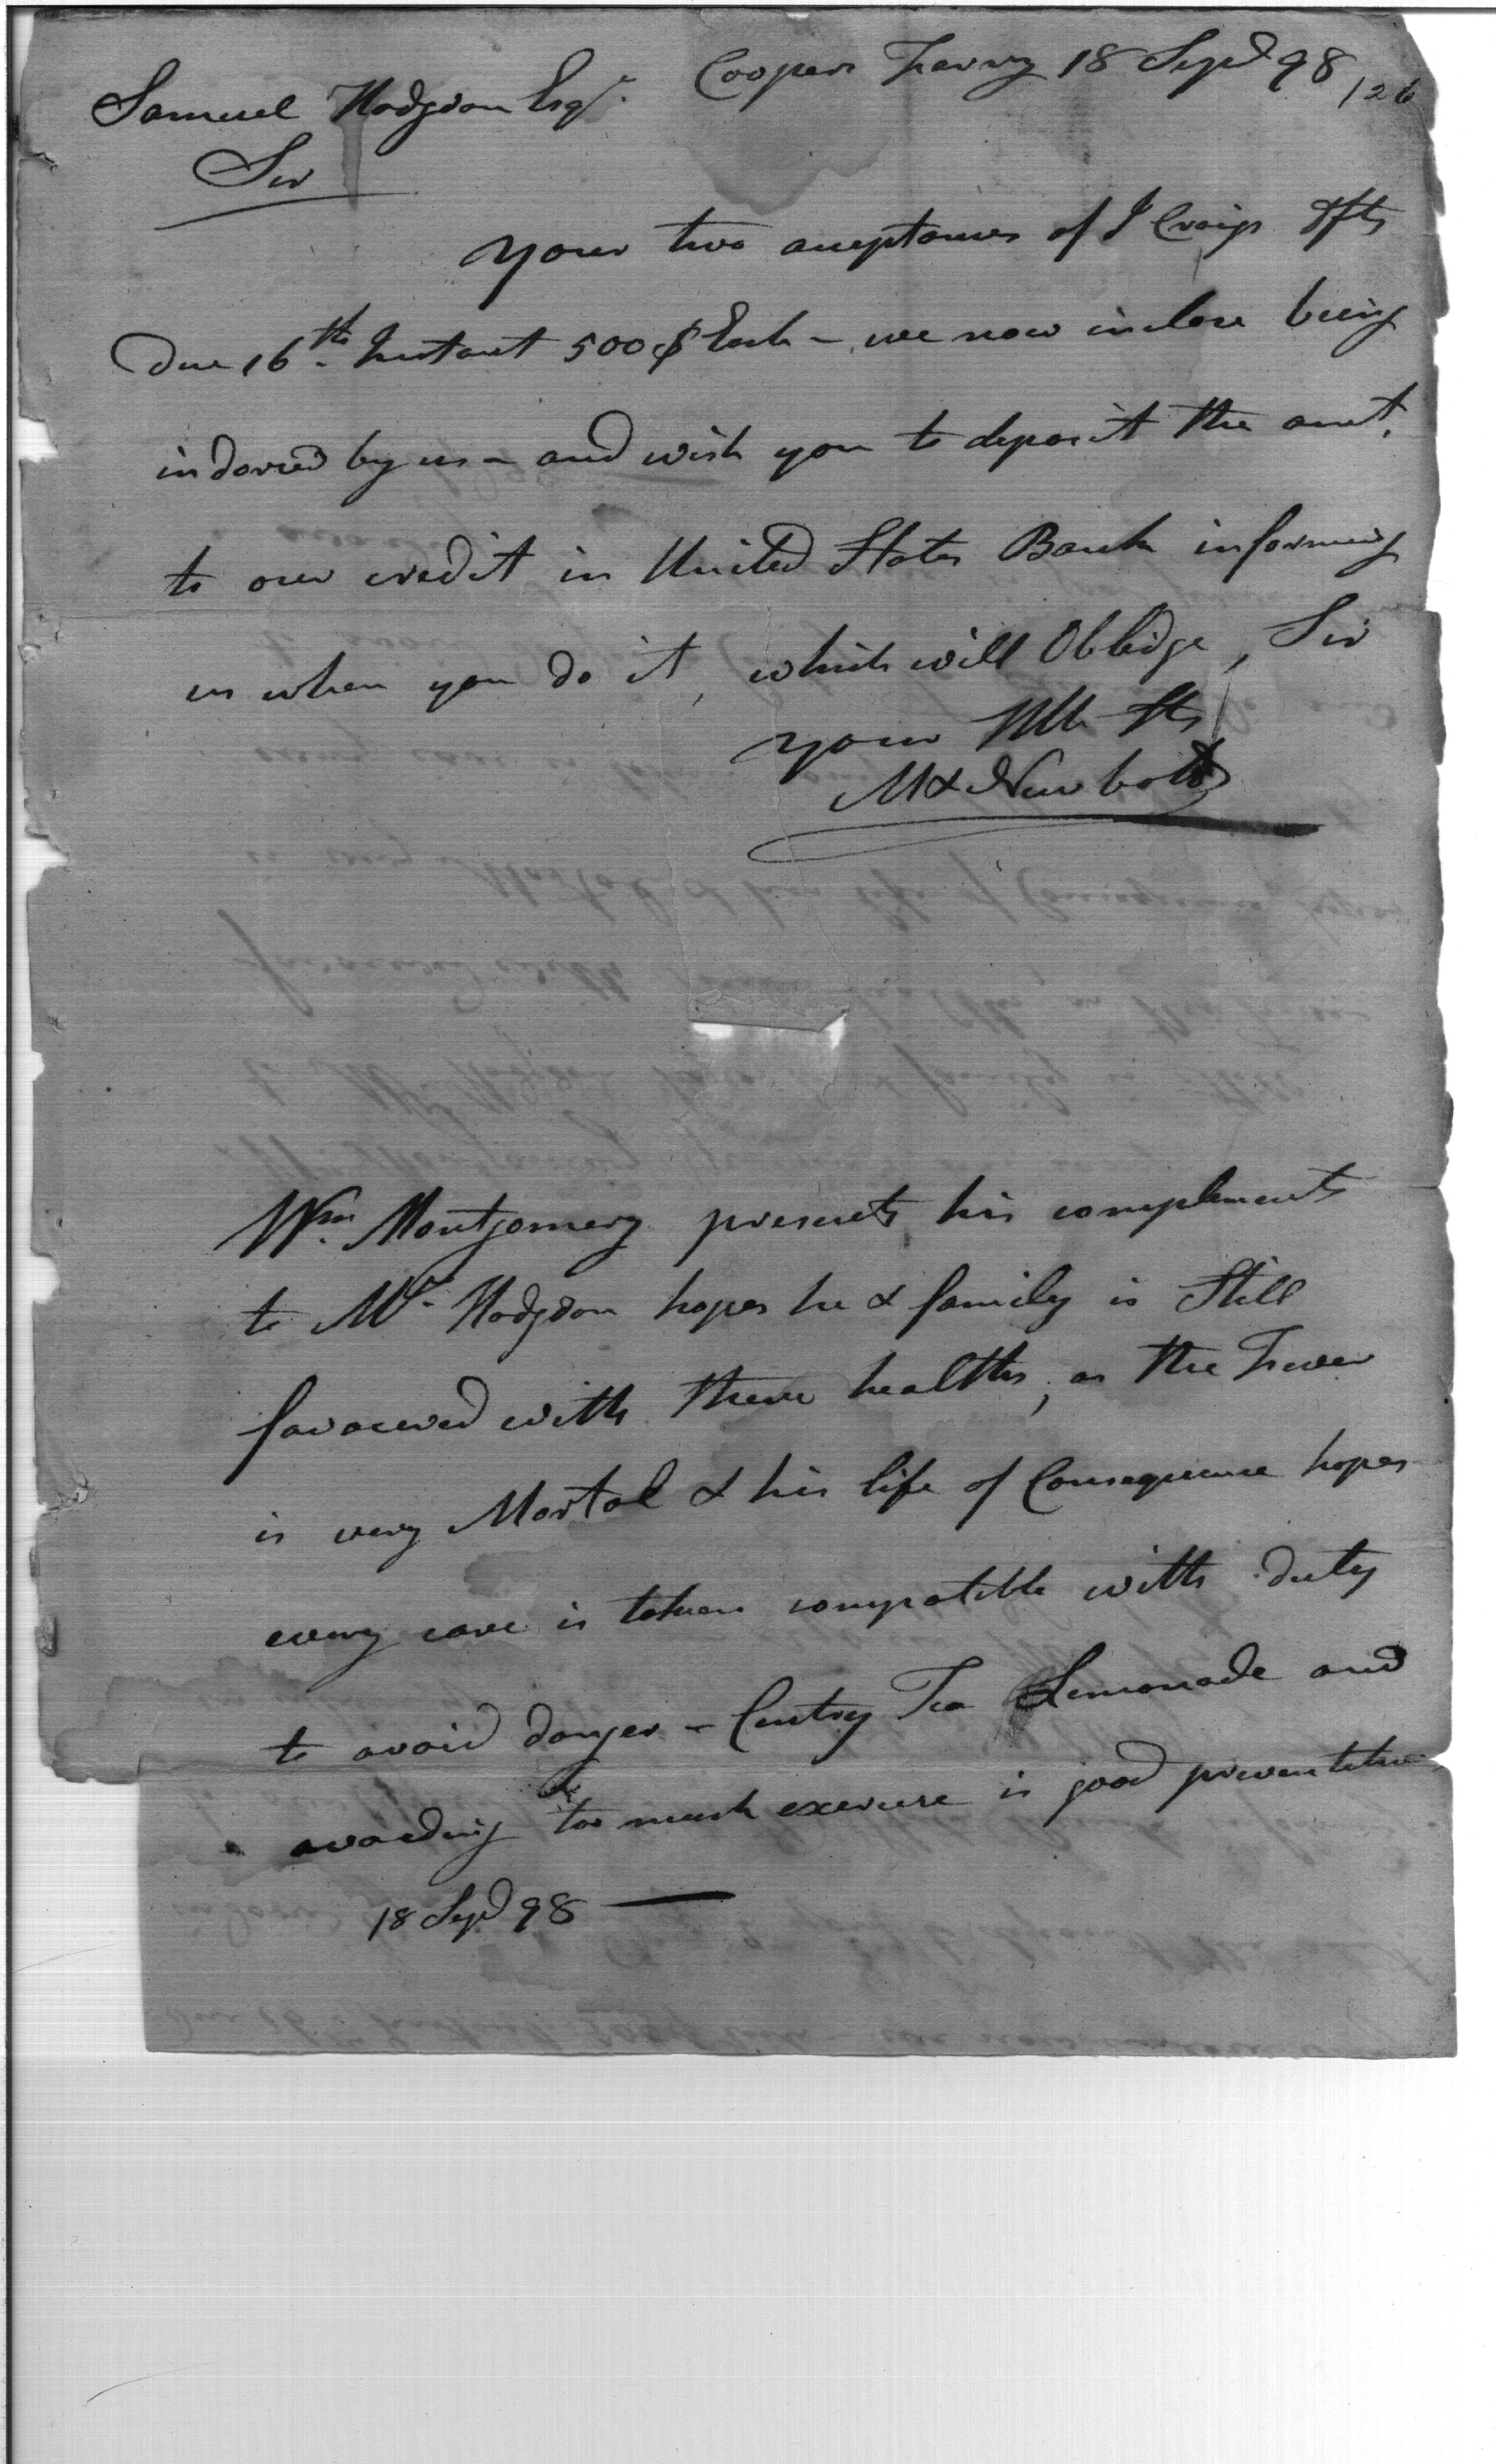 Coopers Ferry 18 Sepr 98
126
Samuel Hodgdon Esqr.
Sir
Your two acceptances of J Craigs Dfts
due 16th Instant 500$ Each - we now inclose being
indorsed by us - and wish you to deposit the amt.
to our credit in United States Bank informing
us when you do it, which will Obledge, Sir
your
M & Newbold
Wm. Montgomery presents his complements
to Mr. Hodgdon hopes he & family is Still
favoured with there healths, as the Fever
is very Mortal & his life of Consequence hopes
every care is taken compatible with duty
to avoid danger - Centry Tea Lemonade and
avoiding too much exercise is good preventitive
18 Sepr 98 —